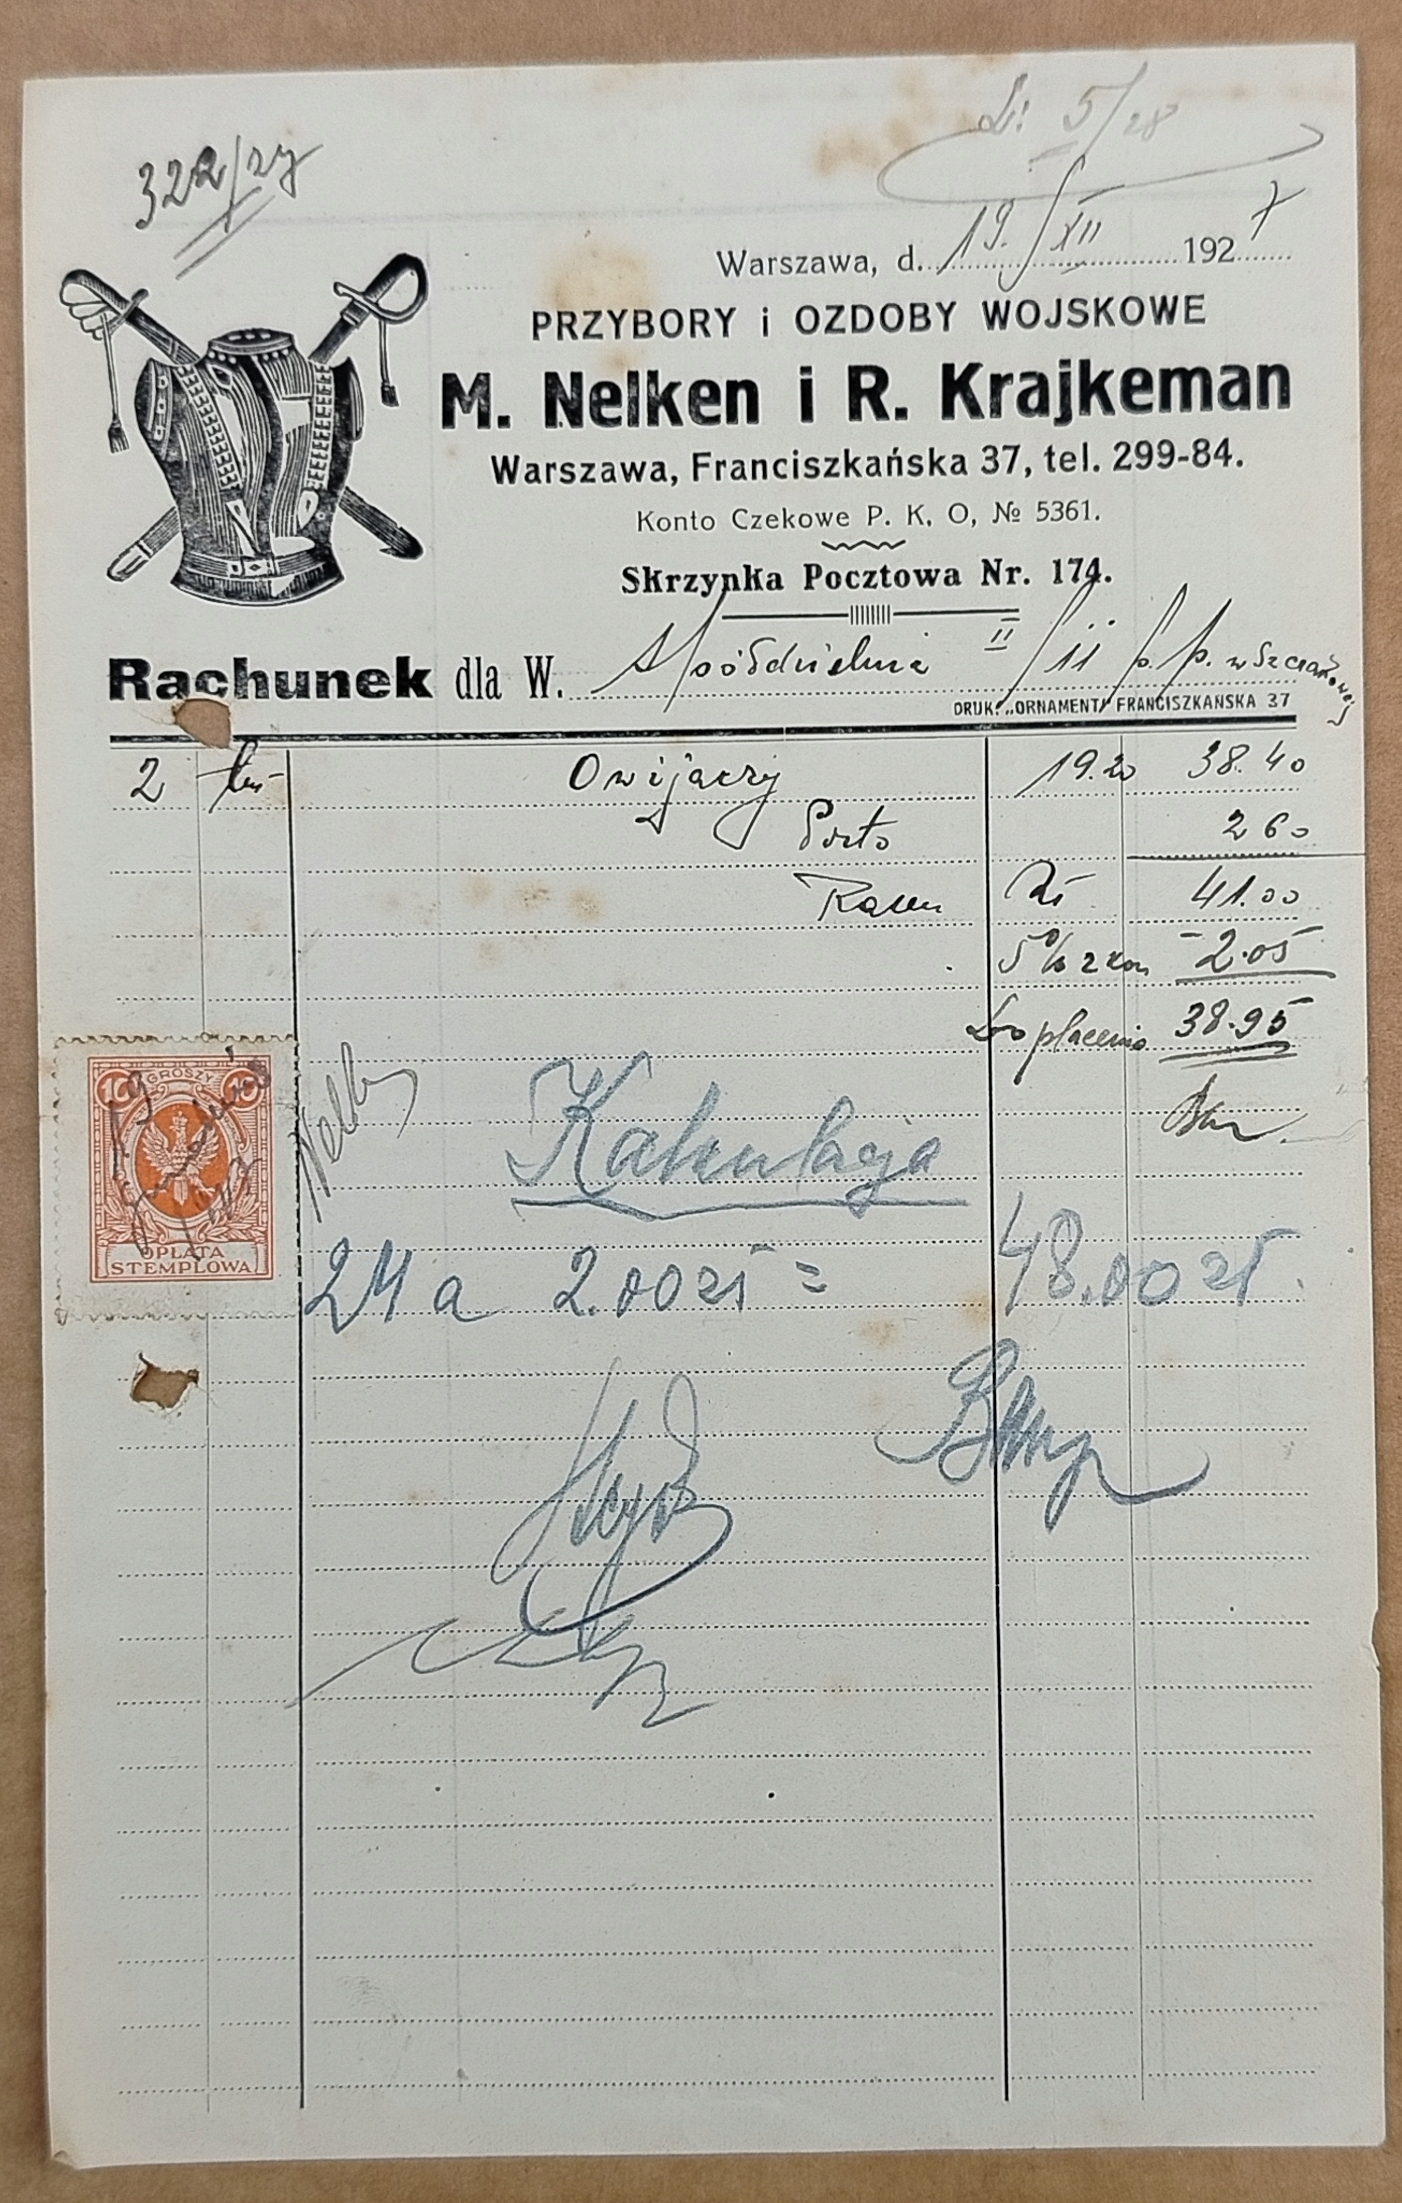 L: 5/28
322/27
Warszawa, d. 19/XII 1927
PRZYBORY i OZDOBY WOJSKOWE
M. Nelken i R. Krajkeman
Warszawa, Franciszkańska 37, tel. 299-84.
Konto Czekowe P. K. O, № 5361.
Skrzynka Pocztowa Nr. 174.
Rachunek dla W. Spółdzielnia II/11 p. p. w Szczakowej
DRUK. „ORNAMENT" FRANCISZKAŃSKA 37
2 tuz Owijaczy 19.20 38.40
Porto 2 60
Razem Zł 41.00
5% skon -2.05
Do płacenia 38.95
10 GROSZY 10
19
OPŁATA
STEMPLOWA
Nelken
Kalkulacja
24 a 2.00 zł = 48.00 zł.